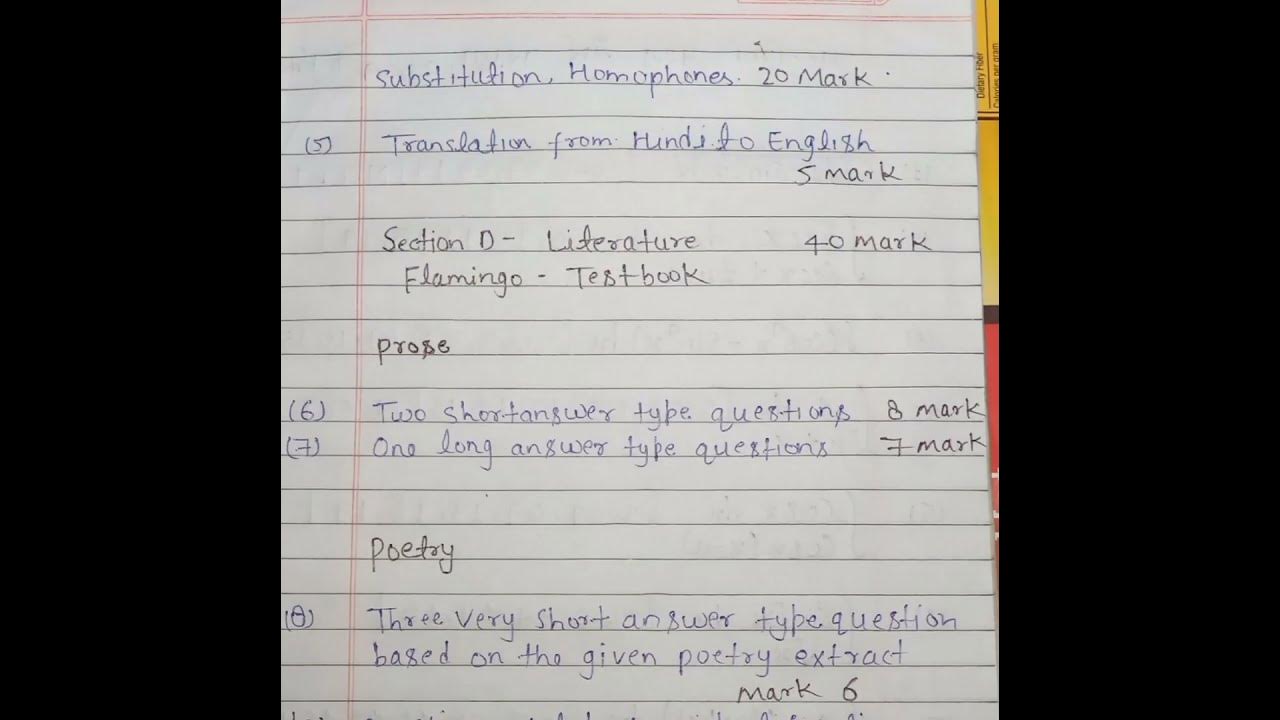 Substitution, Homophones. 20 Mark.
(5) Translation from Hindi to English
5 mark
Section D - Literature 40 mark
Flamingo - Testbook
prose
(6) Two shortanswer type questions 8 mark
(7) One long answer type questions 7 mark
Poetry
(8) Three very short answer type question
based on the given poetry extract
mark 6
Dietary Fiber
Calories per gram